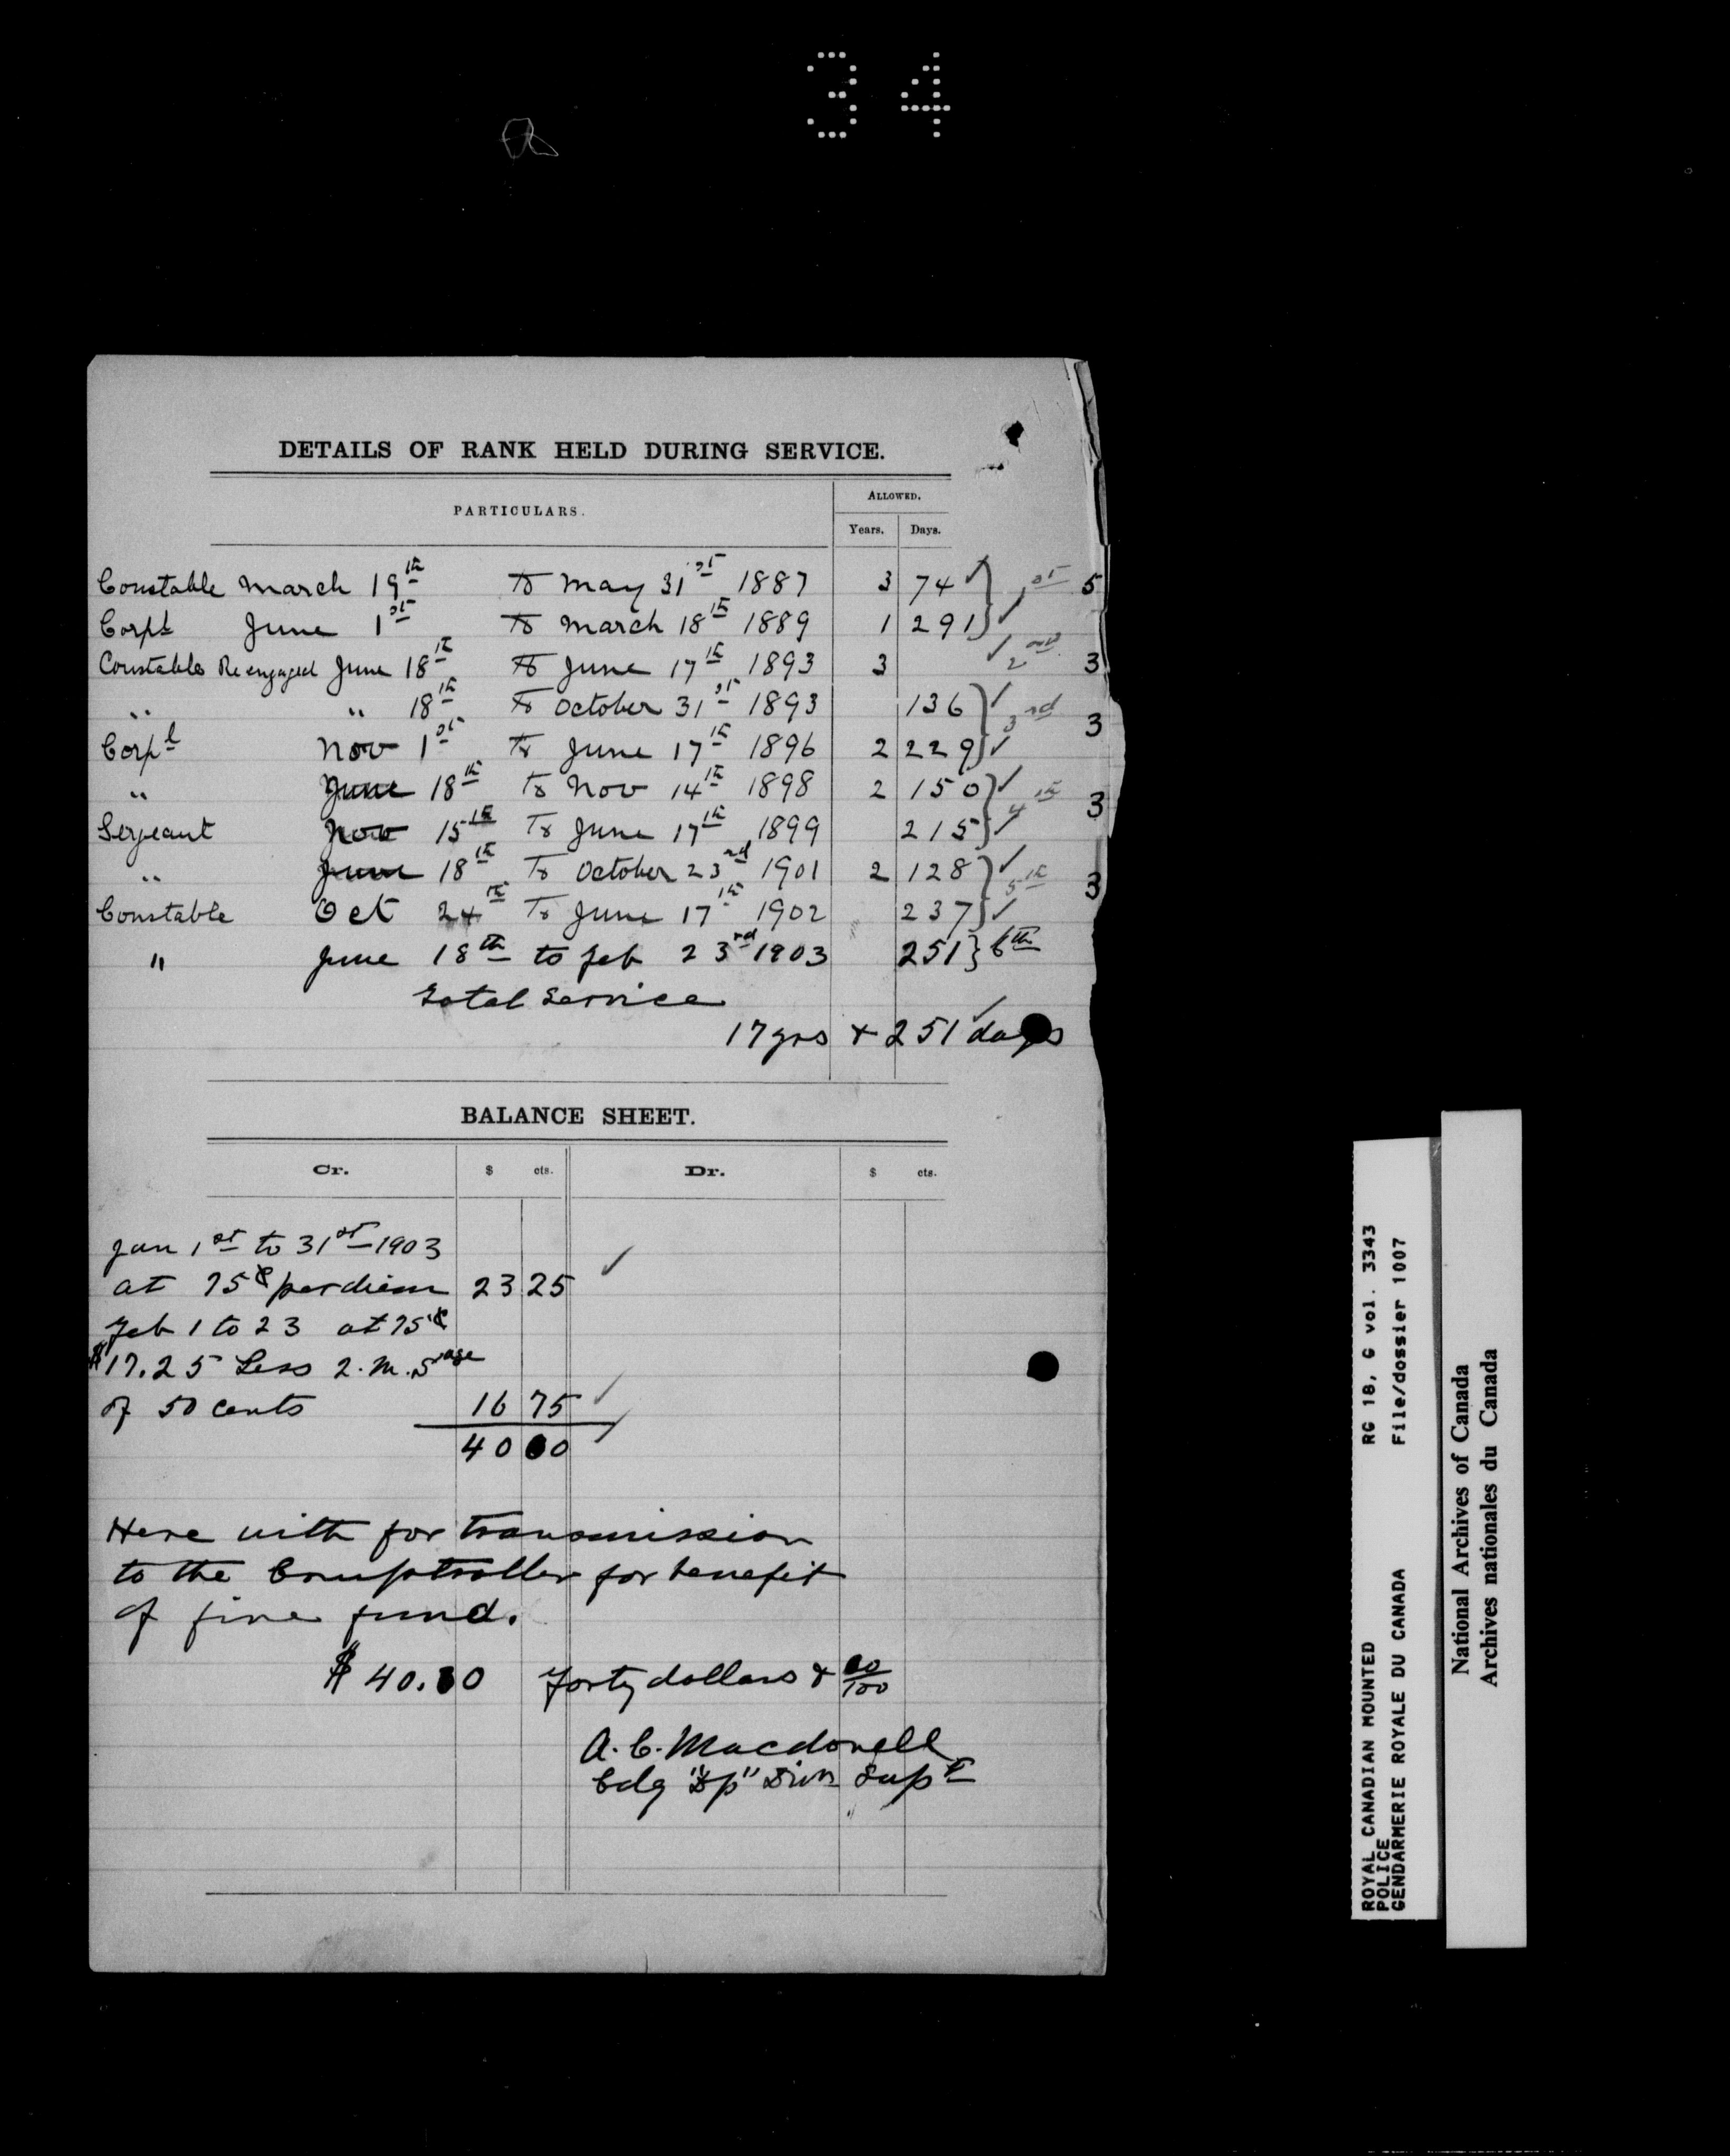 34
DETAILS OF RANK HELD DURING SERVICE.
PARTICULARS. ALLOWED.
Years. Days.
Constable March 19th to May 31st 1887 3 74 1st 5
Corpl June 1st to March 18th 1889 1 291
Constable Re engaged June 18th to June 17th 1893 3 2nd 3
" " 18th to October 31st 1893 136 3rd 3
Corpl Nov 1st to June 17th 1896 2 229
" June 18th to Nov 14th 1898 2 150 4th 3
Sergeant Nov 15th to June 17th 1899 215
" June 18th to October 23rd 1901 2 128 5th 3
Constable Oct 24th to June 17th 1902 237
" June 18th to Feb 23rd 1903 251 6th
Total Service
17 yrs & 251 days
BALANCE SHEET.
Cr. $ cts. Dr. $ cts.
Jan 1st to 31st 1903
at 75¢ per diem 23 25
Feb 1 to 23 at 75¢
$17.25 Less 2.M.
of 50 cents 16 75
40 00
Here with for transmission
to the Comptroller for benefit
of fine fund.
$ 40.00 Forty dollars & 00/100
A. C. Macdonell
Cdg Div Supt
ROYAL CANADIAN MOUNTED RG 18, G vol. 3343
POLICE
GENDARMERIE ROYALE DU CANADA File/dossier 1007
National Archives of Canada
Archives nationales du Canada